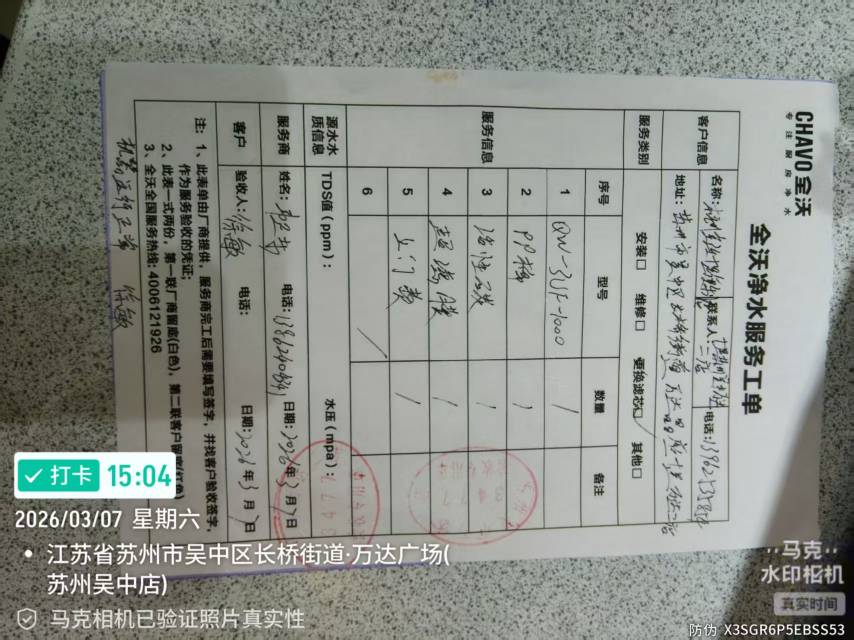 CHAVO全沃
专注厨房净水
全沃净水服务工单
客户信息
名称：
联系人：
电话：
地址：苏州市吴中区长桥街道万达
服务类别
安装□ 维修□ 更换滤芯□ 其他□
服务信息
序号 型号 数量 备注
1 QW-3UF-1000 1
2 PP棉 1
3 活性炭 1
4 超滤膜 1
5 上门费 1
6
源水水质信息
TDS值（ppm）： 水压（mpa）：
服务商 姓名： 电话： 日期：2026年3月7日
客户 验收人：徐敏 电话： 日期：2026年3月7日
注：1、此表单由厂商提供，服务商完工后需要填写签字，并找客户验收签字，
作为服务验收的凭证；
2、此表一式两份，第一联厂商留底(白色)，第二联客户留底(红色)
3、全沃全国服务热线：4006121926
机器运行正常 徐敏
打卡 15:04
2026/03/07 星期六
江苏省苏州市吴中区长桥街道·万达广场(
苏州吴中店)
马克相机已验证照片真实性
马克
水印相机
真实时间
防伪 X3SGR6P5EBSS53